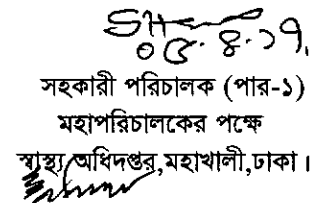 ০৫.৪.১৭.
সহকারী পরিচালক (পার-১)
মহাপরিচালকের পক্ষে
স্বাস্থ্য অধিদপ্তর,মহাখালী,ঢাকা।